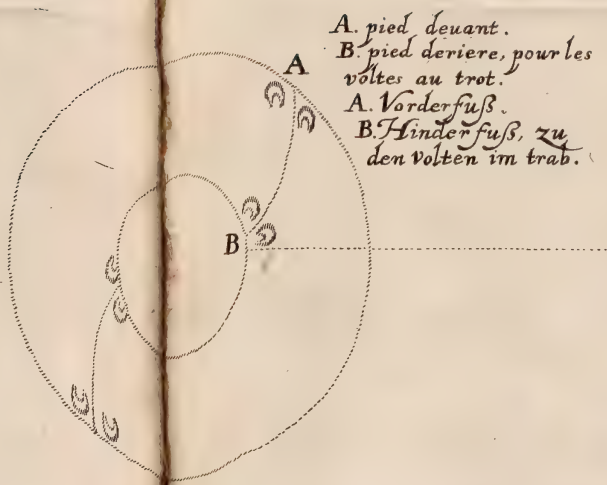 A. pied deuant.
B. pied deriere, pour les
voltes au trot.
A. Vorderfuß.
B. Hinderfuß, zu
den volten im trab.
A
B